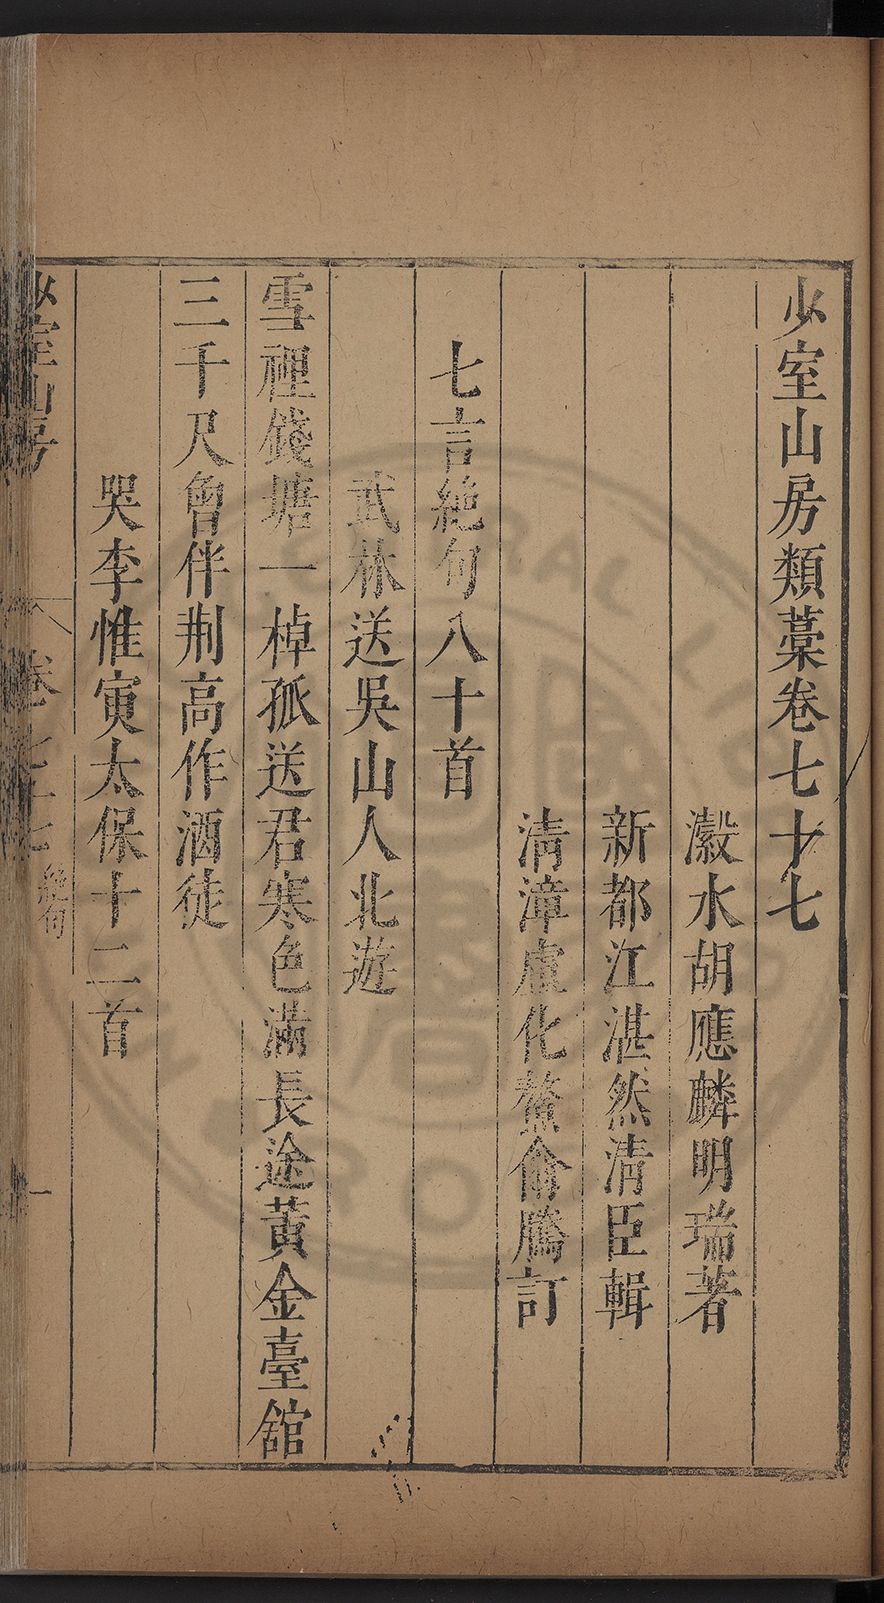 少室山房類藁卷七十七
瀫水胡應麟明瑞著
新都江湛然清臣輯
清漳盧化鰲俞騰訂
七言絶句八十首
武林送吳山人北遊
雪裡錢塘一棹孤送君寒色滿長途黃金臺舘
三千尺曾伴荆高作酒徒
哭李惟寅太保十二首
少室山房
卷七十七
絶句
一